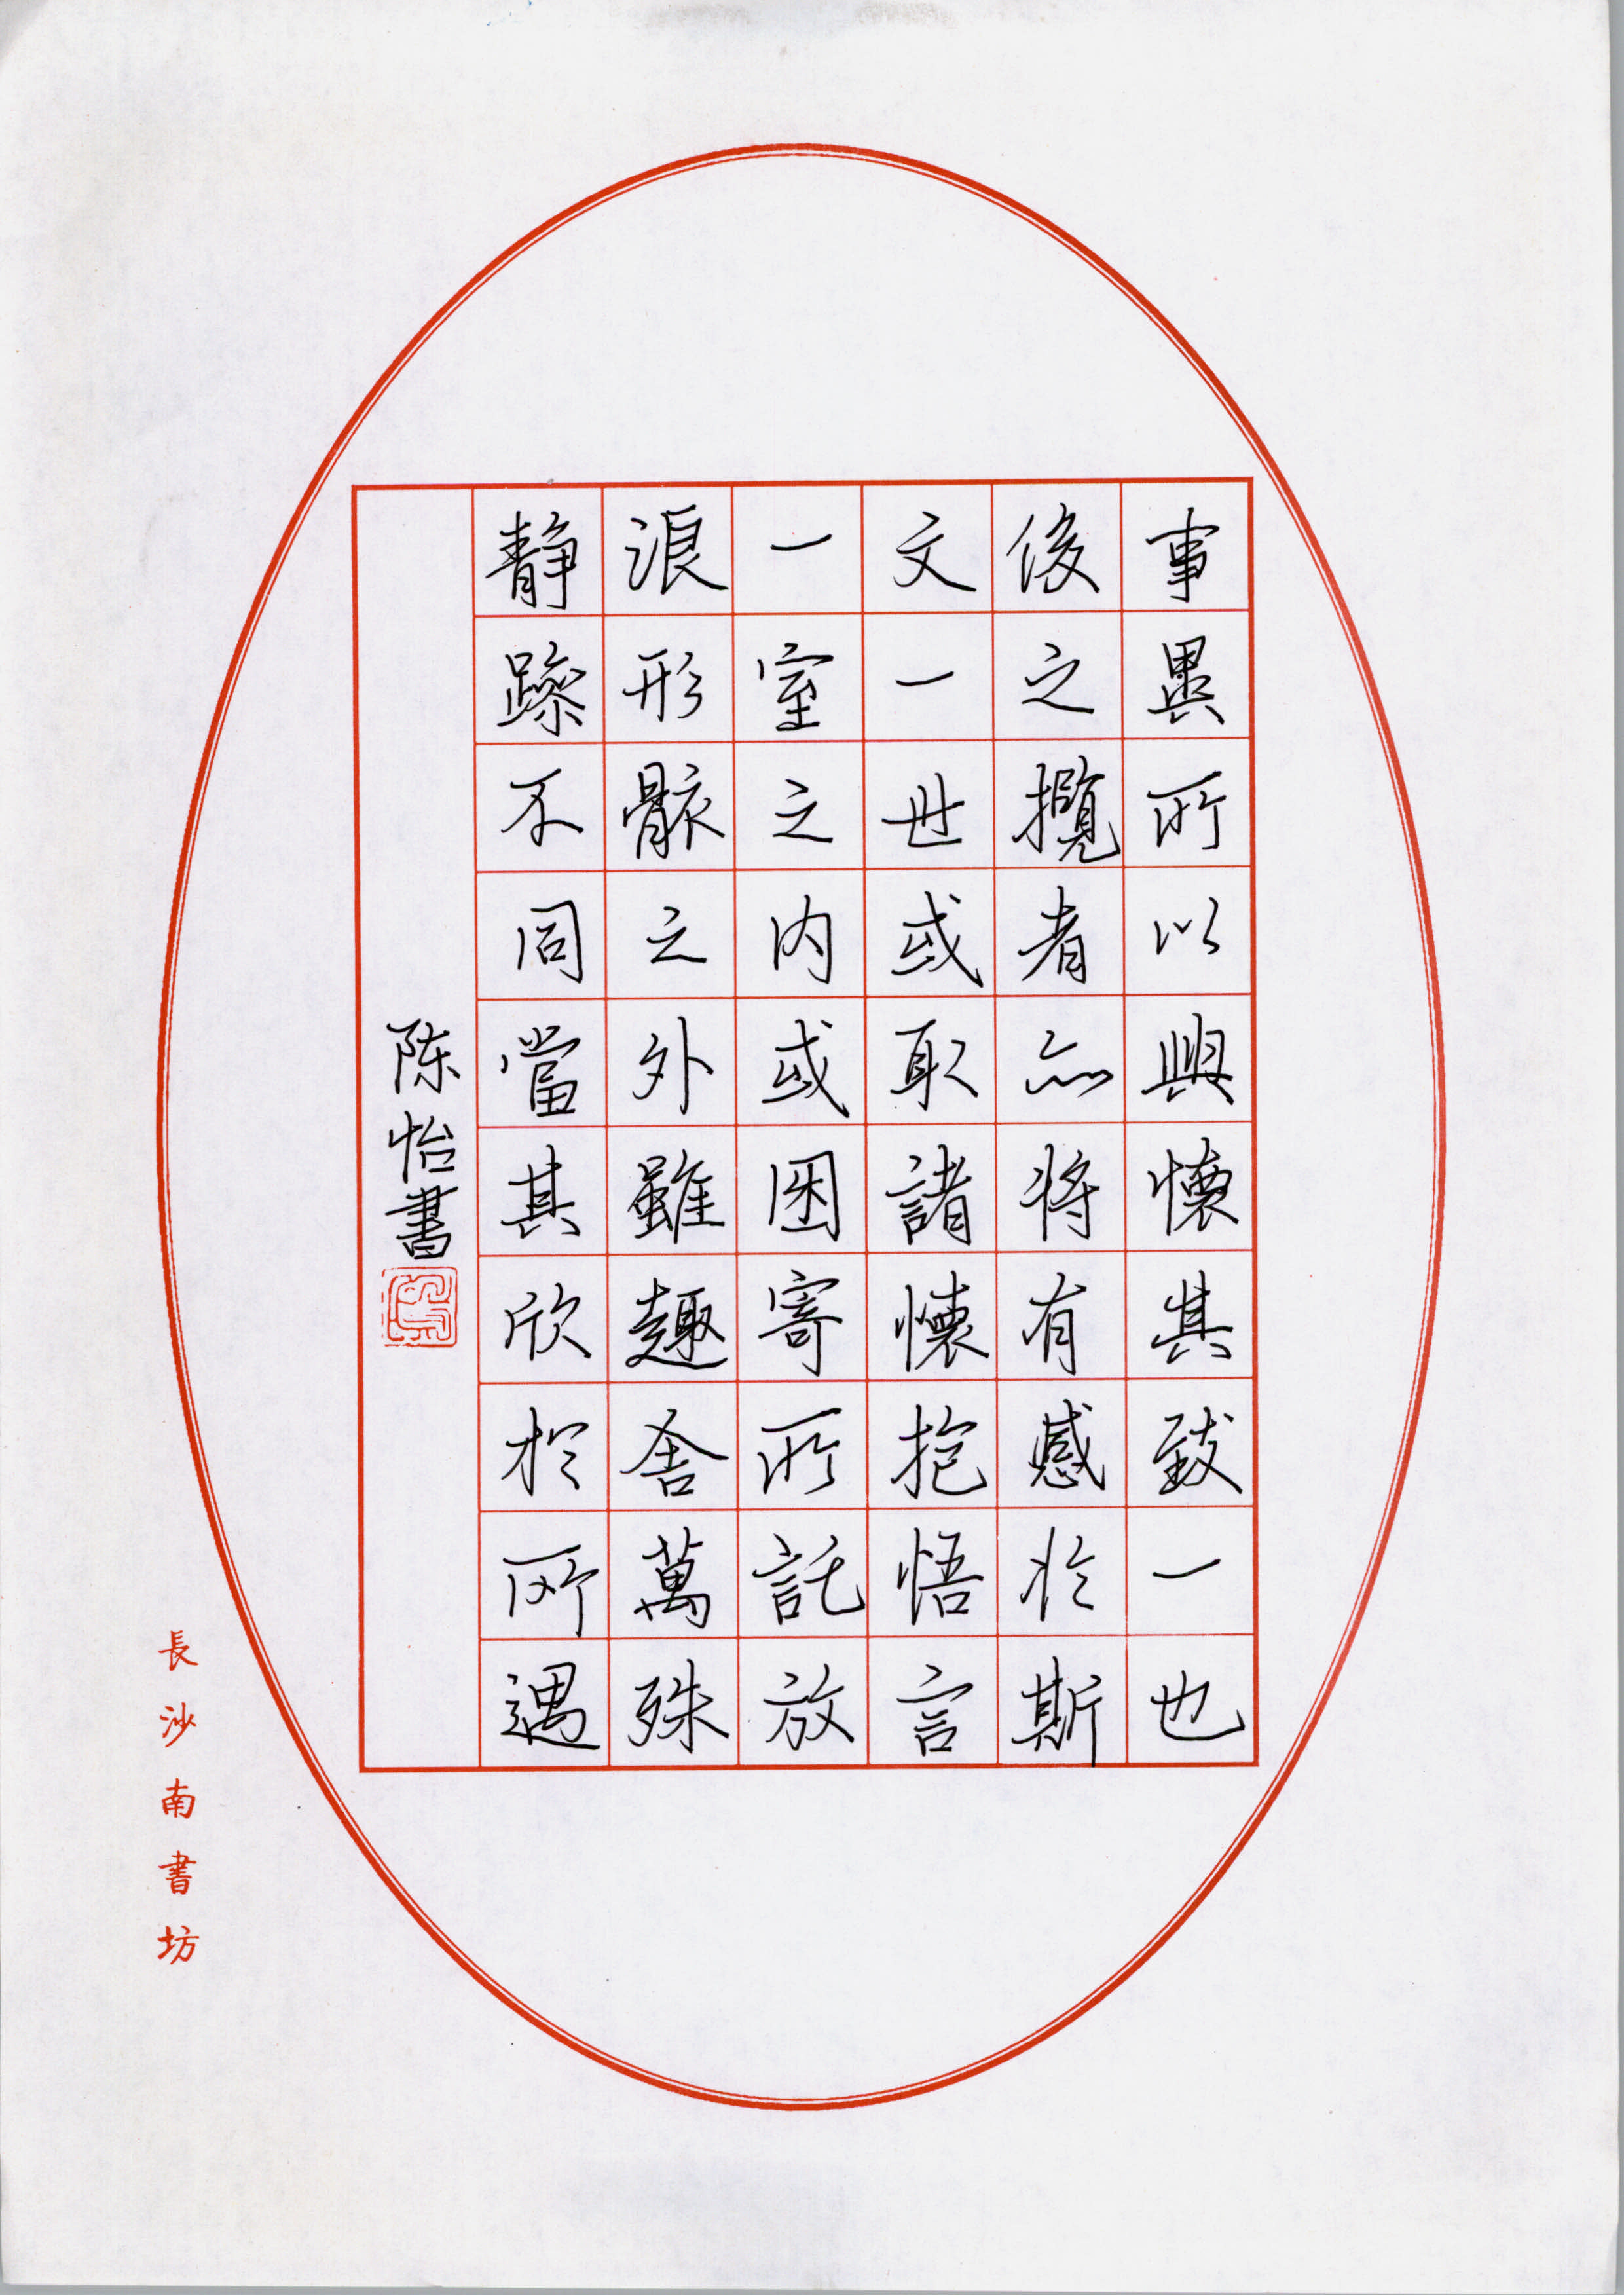 事異所以興懷其致一也
後之攬者亦將有感於斯
文一世或取諸懷抱悟言
一室之内或因寄所託放
浪形骸之外雖趣舍萬殊
静躁不同當其欣於所遇
陈怡書
長沙南書坊